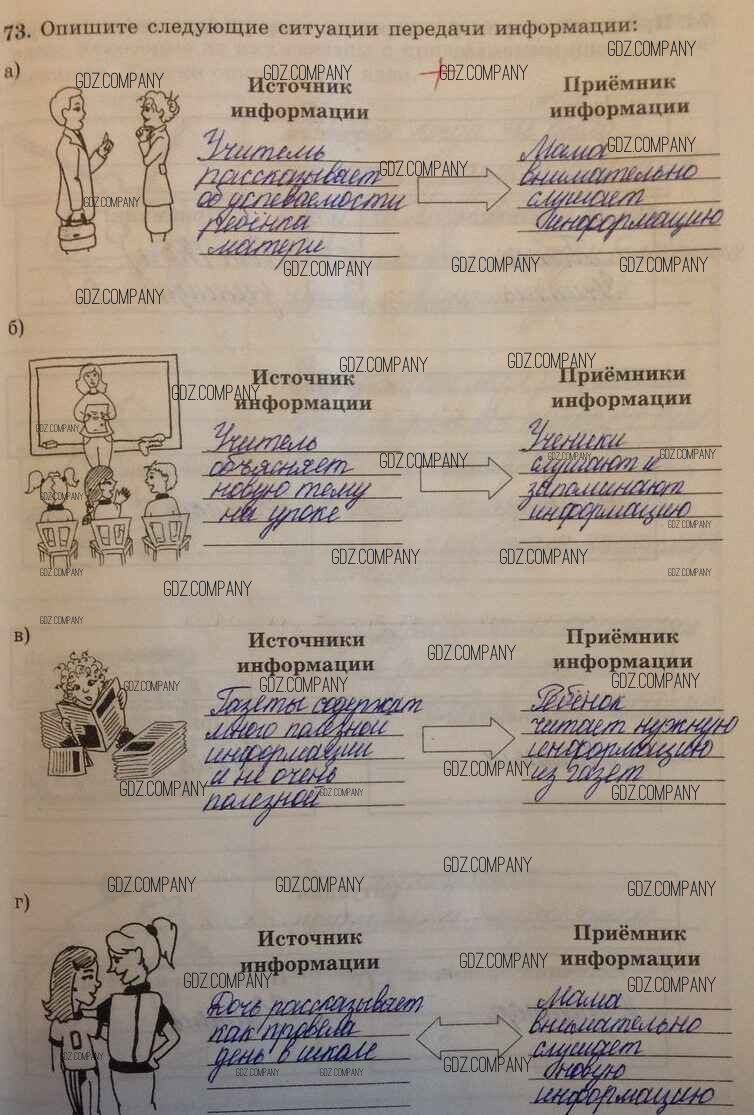 73. Опишите следующие ситуации передачи информации:
GDZ.COMPANY
а)
GDZ.COMPANY GDZ.COMPANY GDZ.COMPANY
Источник информации
Приёмник информации
Учитель GDZ.COMPANY
рассказывает GDZ.COMPANY
об успеваемости
ребёнка
матери
Мама GDZ.COMPANY
внимательно
слушает
информацию
GDZ.COMPANY
GDZ.COMPANY GDZ.COMPANY GDZ.COMPANY
GDZ.COMPANY
б)
GDZ.COMPANY GDZ.COMPANY
GDZ.COMPANY
Источник
информации
Приёмники
информации
GDZ.COMPANY
Учитель
объясняет
новую тему
на уроке
GDZ.COMPANY
Ученики
GDZ.COMPANY GDZ.COMPANY
слушают и
запоминают
информацию
GDZ.COMPANY
GDZ.COMPANY
GDZ.COMPANY GDZ.COMPANY
GDZ.COMPANY GDZ.COMPANY
GDZ.COMPANY
GDZ.COMPANY
в)
Источники
информации
Приёмник
информации
GDZ.COMPANY
GDZ.COMPANY GDZ.COMPANY GDZ.COMPANY
Газеты содержат
много полезной
информации
и не очень
полезной
Ребёнок
читает нужную
информацию
из газет
GDZ.COMPANY
GDZ.COMPANY GDZ.COMPANY GDZ.COMPANY
GDZ.COMPANY
GDZ.COMPANY GDZ.COMPANY GDZ.COMPANY
г)
Источник
информации
Приёмник
информации
GDZ.COMPANY
GDZ.COMPANY GDZ.COMPANY
Дочь рассказывает
как провела
день в школе
Мама
внимательно
слушает
новую
информацию
GDZ.COMPANY GDZ.COMPANY
GDZ.COMPANY GDZ.COMPANY